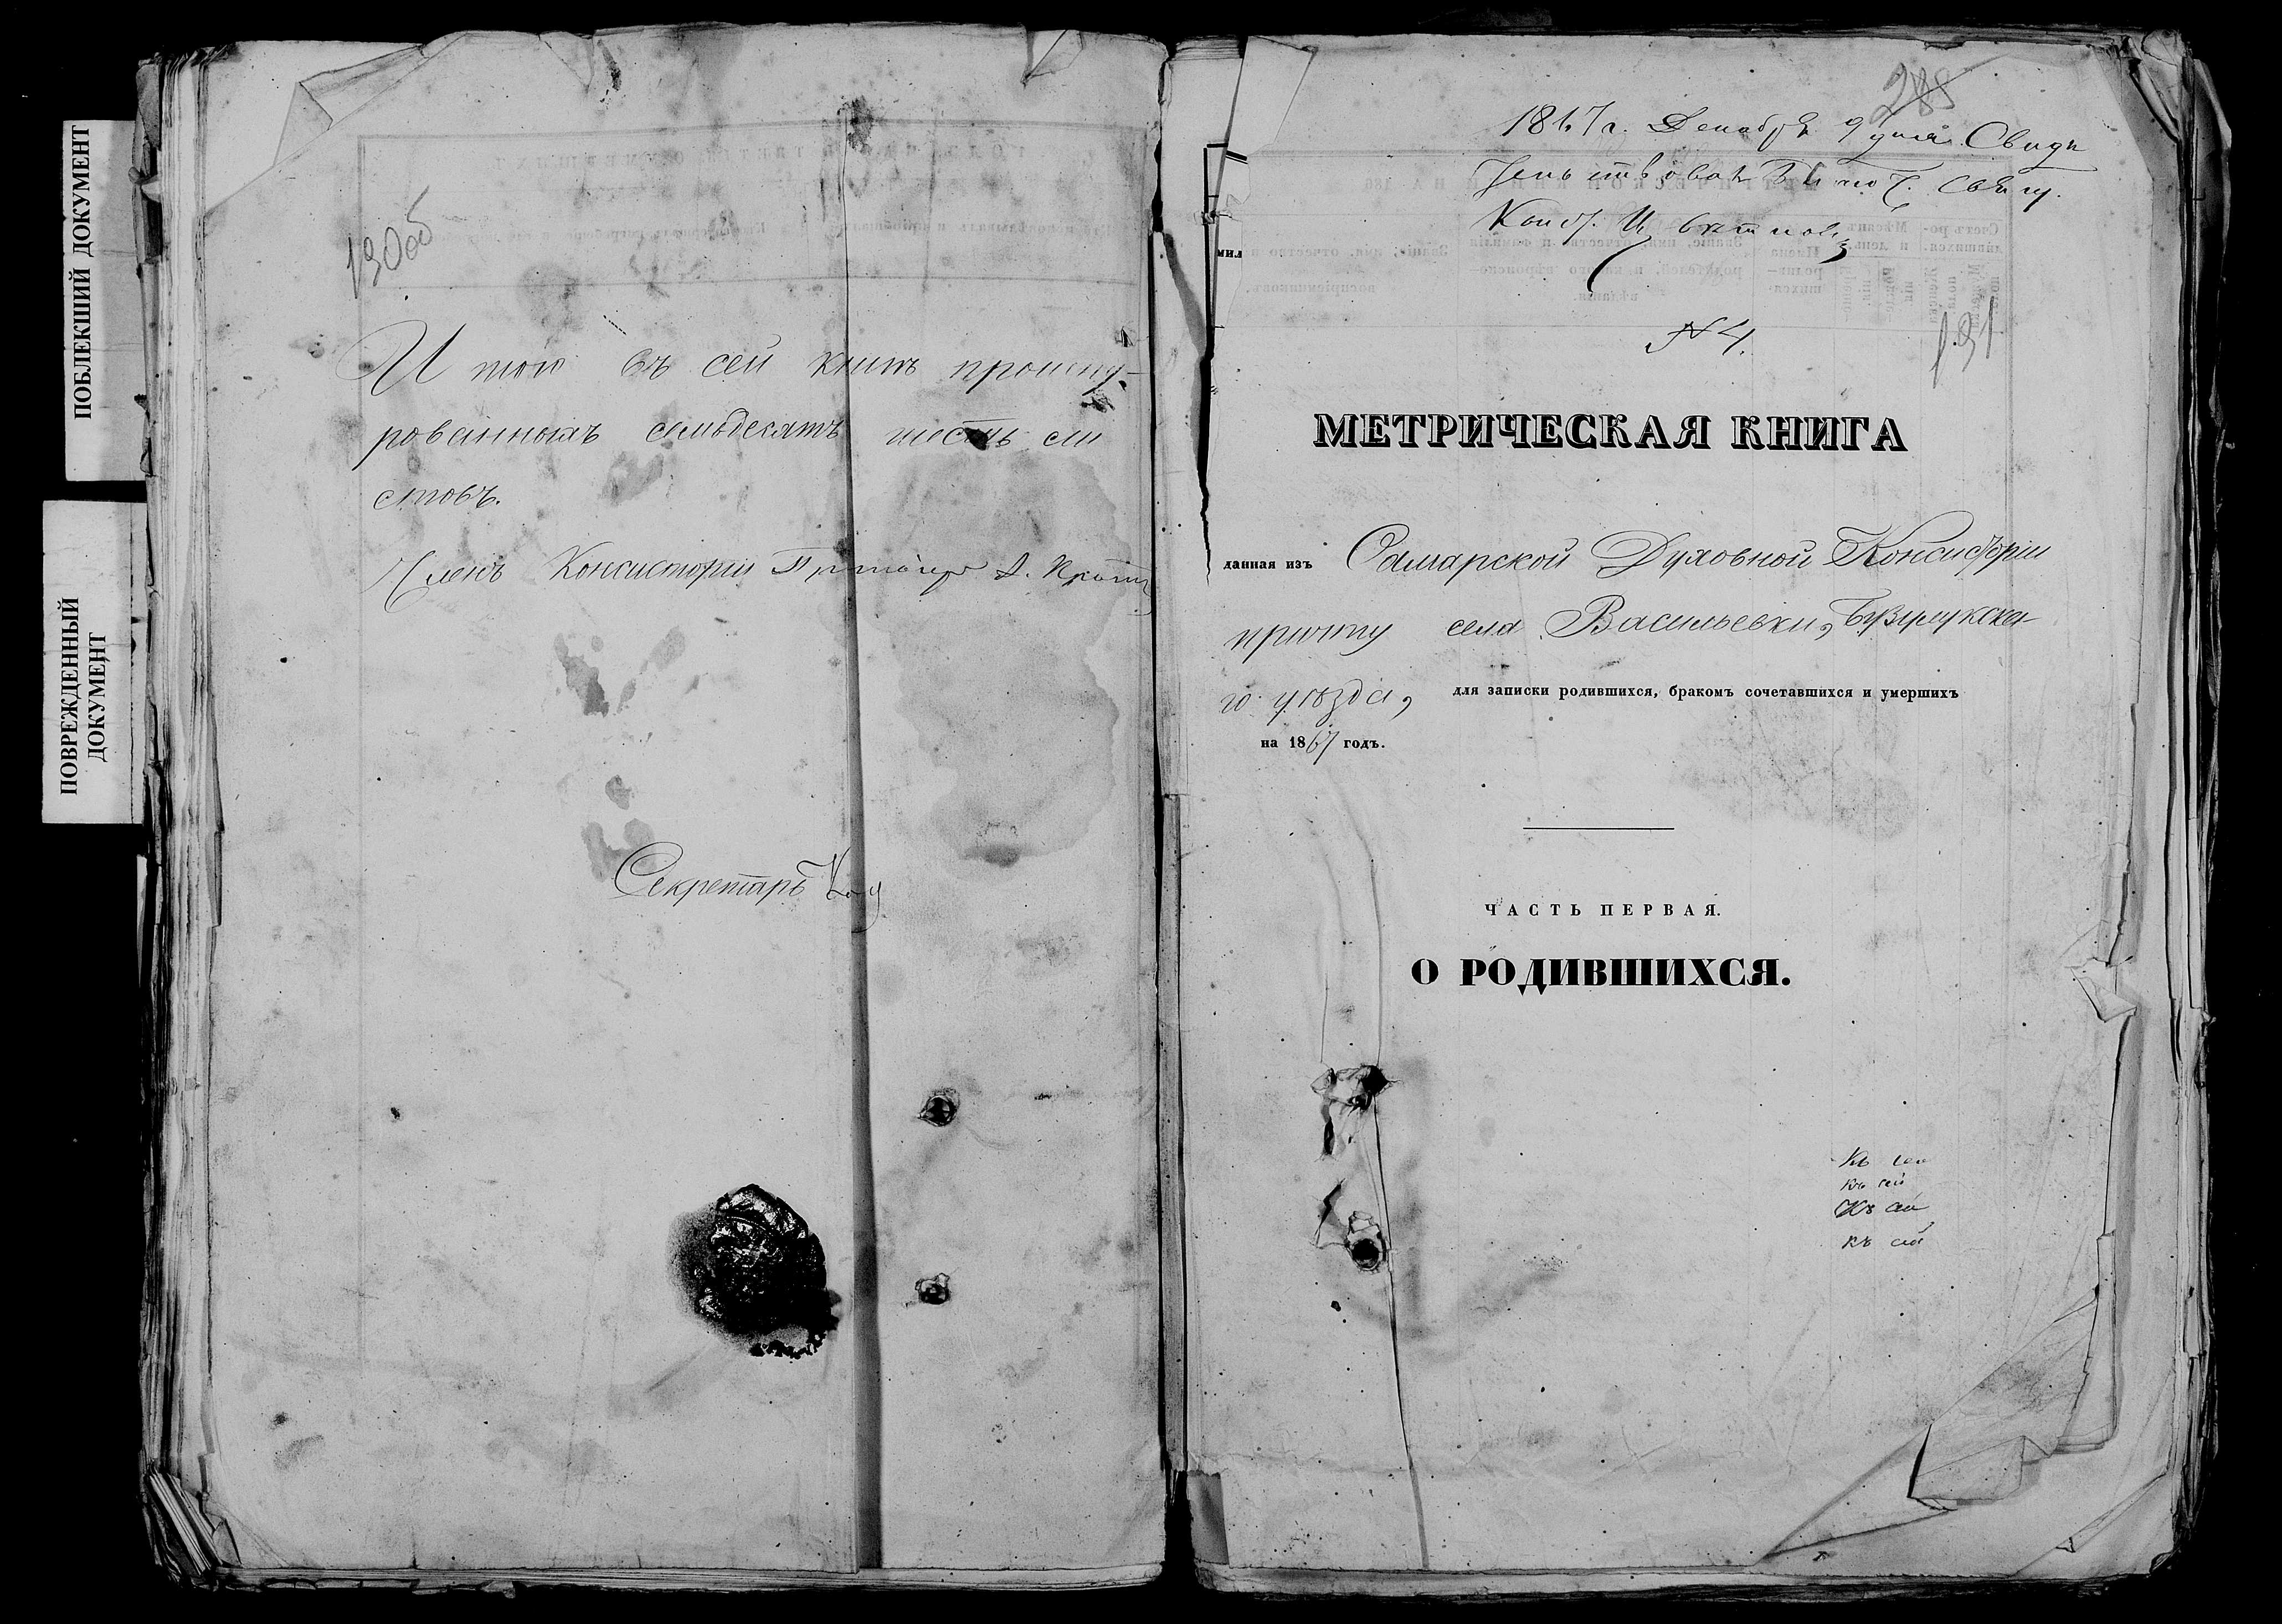 ПОБЛЕКШИЙ ДОКУМЕНТ
ПОВРЕЖДЕННЫЙ
ДОКУМЕНТ
130об
Итого въ сей книгѣ прошну-
рованныхъ семьдесятъ шесть ли
стовъ.
Членъ Консисторіи
Секретарь
288
1867 г. Декабря 9 дня Свидѣ
№ 4.
131
мил
МЕТРИЧЕСКАЯ КНИГА
данная изъ Самарской Духовной Консисторіи
причту села Васильевки, Бузулукска
го уѣзда, для записки родившихся, бракомъ сочетавшихся и умершихъ
на 1867 годъ.
ЧАСТЬ ПЕРВАЯ.
О РОДИВШИХСЯ.
Къ сей
къ сей
Къ сей
къ сей